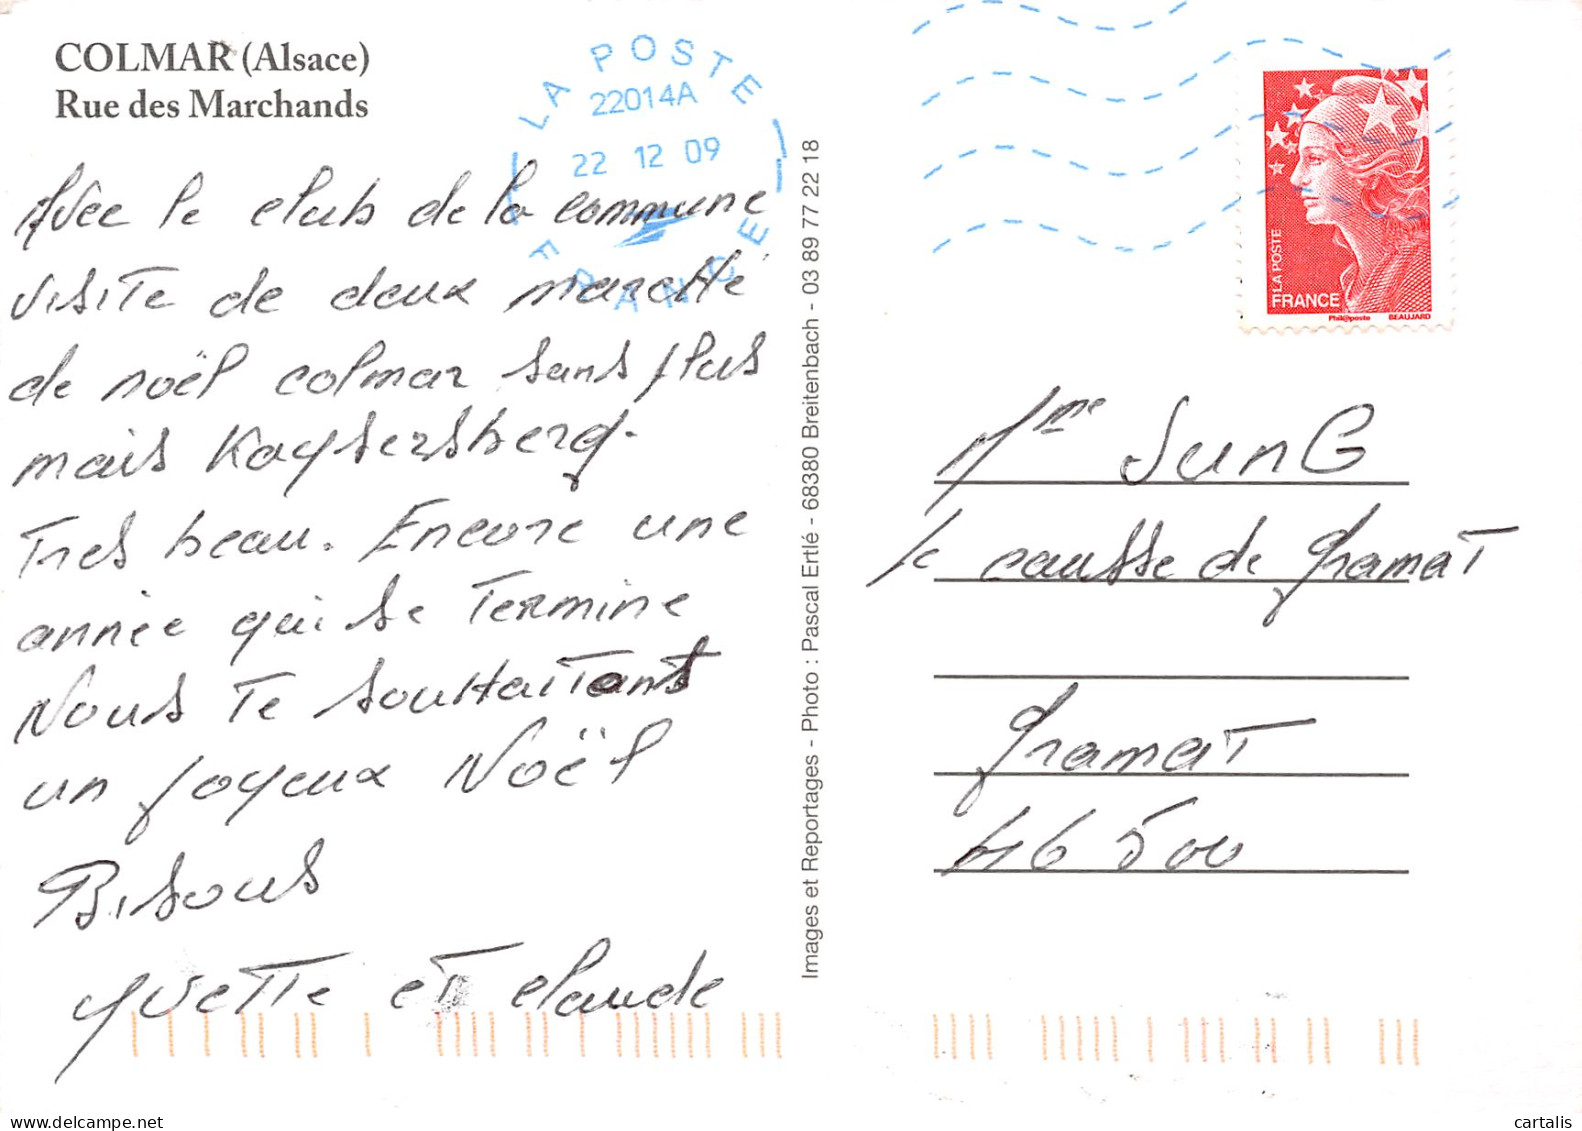 COLMAR (Alsace)
Rue des Marchands
LA POSTE
22014A
22 12 09
FRANCE
Avec le club de la commune
visite de deux marché
de noël colmar sans plus
mais Kaysersberg.
Tres beau. Encore une
année qui se Termine
Nous Te souhaitants
un joyeux Noël
Bisous
Yvette et claude
Images et Reportages - Photo : Pascal Ertlé - 68380 Breitenbach - 03 89 77 22 18
LA POSTE
FRANCE
Phil@poste BEAUJARD
Mme SunG
le causse de Gramat
Gramat
46 500
delcampe.net
cartalis